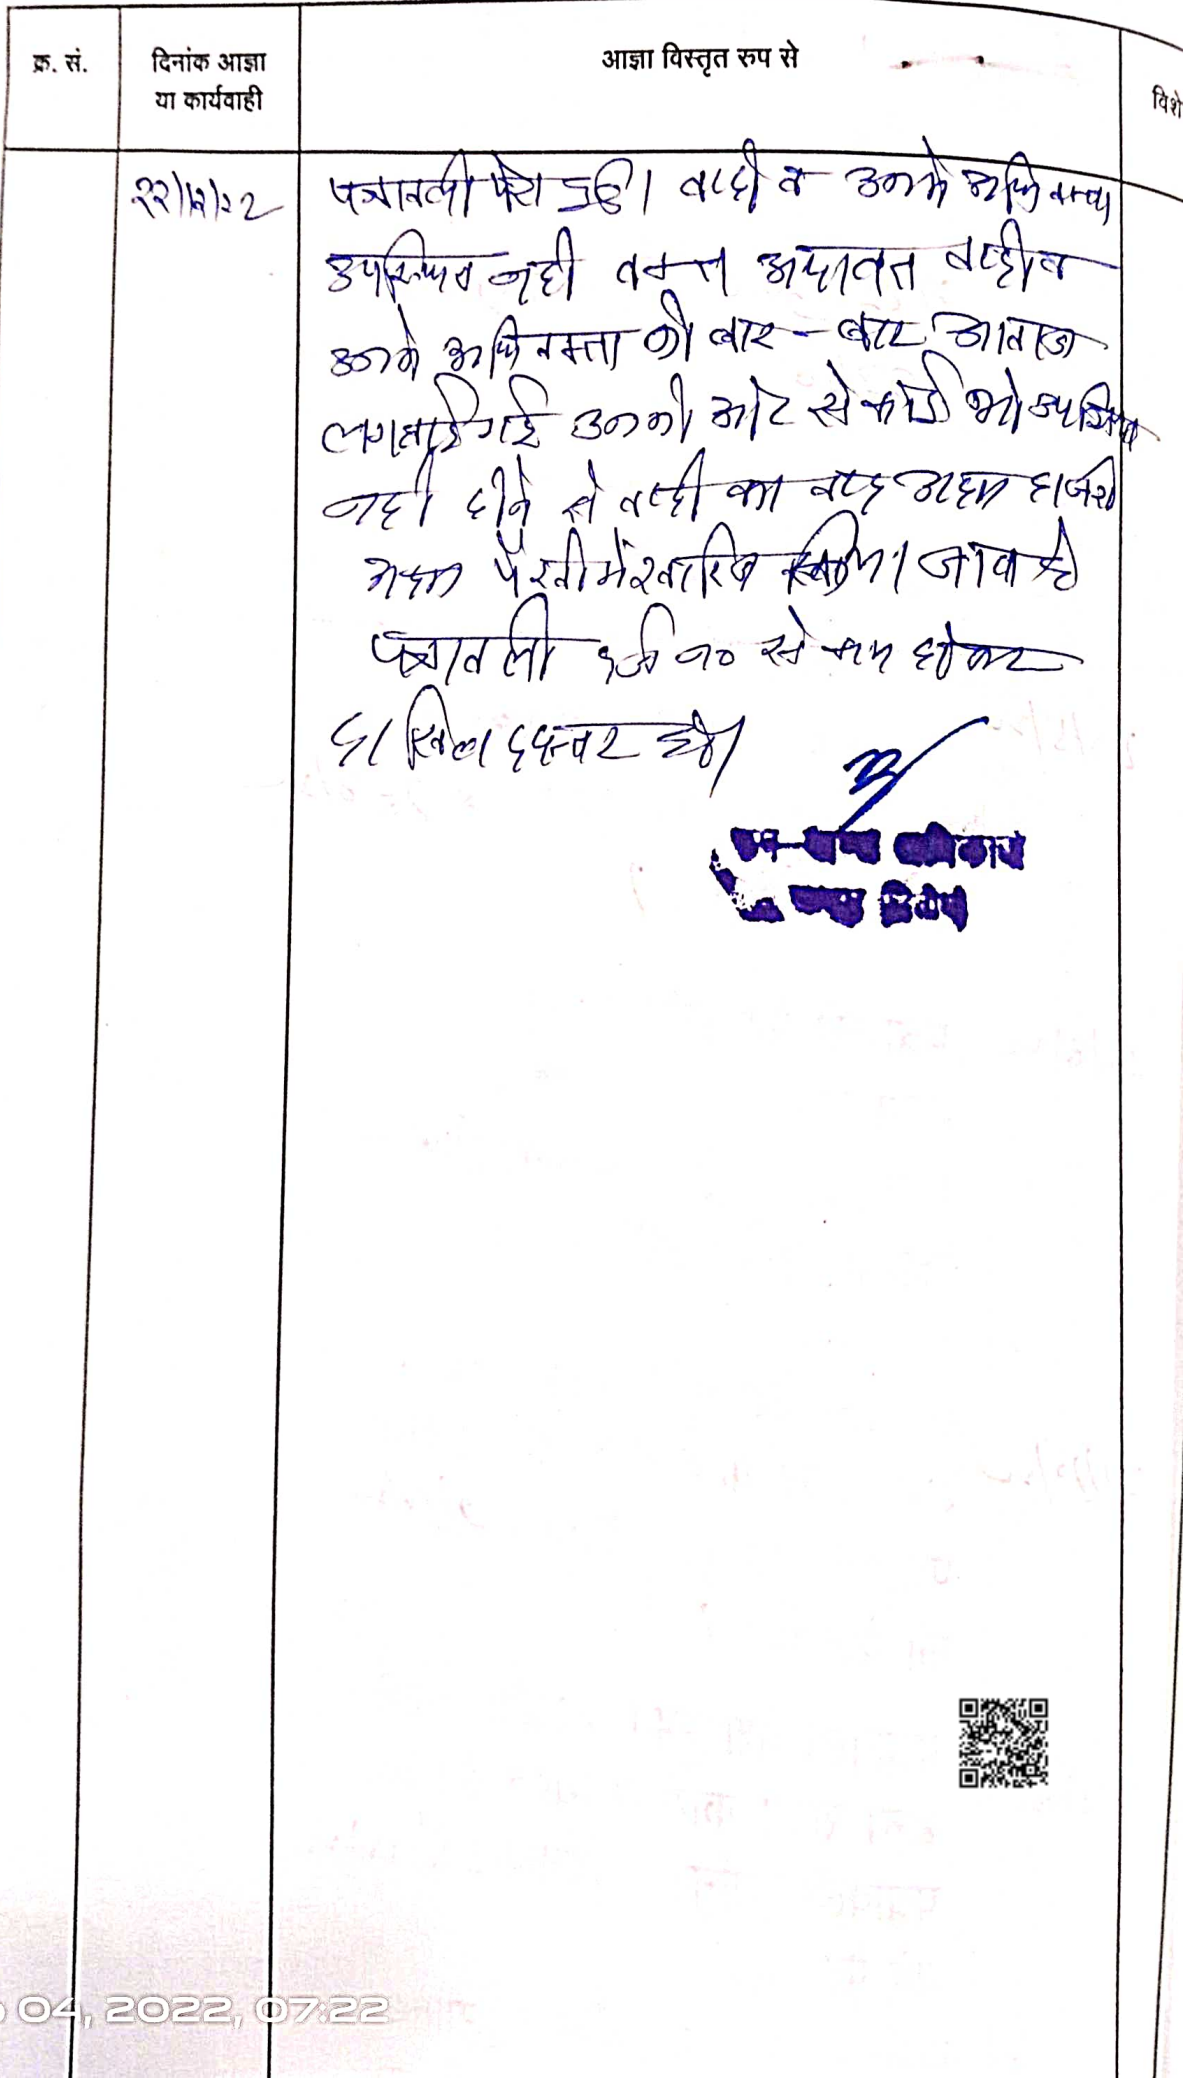 क्र. सं.
दिनांक आज्ञा
या कार्यवाही
आज्ञा विस्तृत रूप से
विशे
पत्रावली पेश हुई। वादी व उनके अधिवक्ता
उपस्थित नहीं वक्त अदालत वादी व
उनके अधिवक्ता को बार - बार आवाज
लगवाई गई उनकी ओर से कोई भी उपस्थित
नही होने से वादी का वाद अदम हाजरी
अदम पैरवी में खारिज किया जाता है
पत्रावली से कम होकर
दाखिल दफ्तर हो।
04, 2022, 07:22